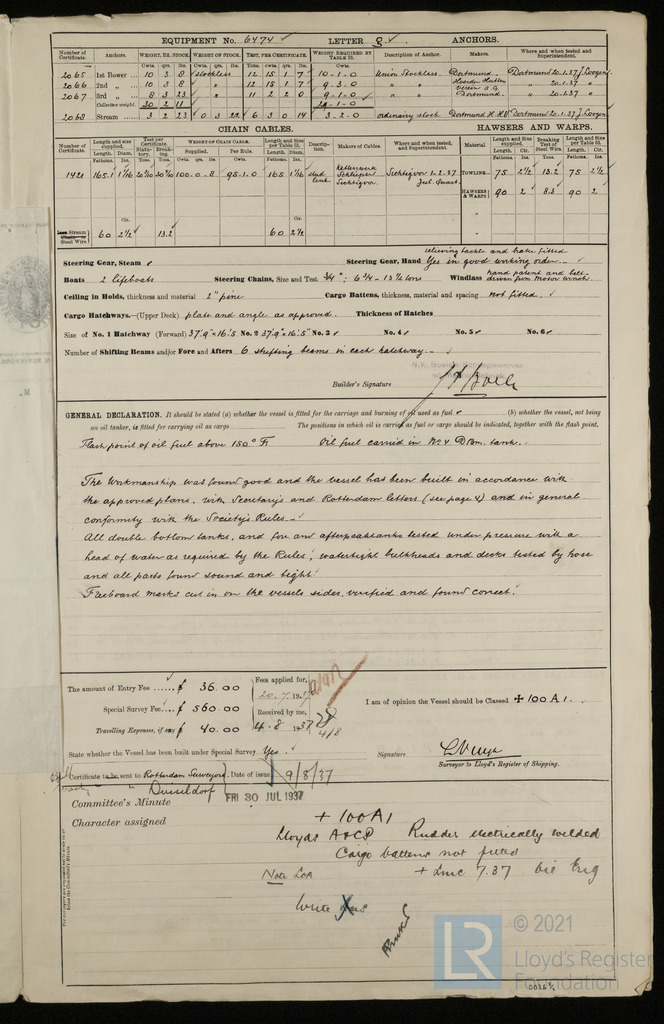 EQUIPMENT No. 6474 LETTER ANCHORS.
Number of Certificate. Anchors. WEIGHT, EX. STOCK. WEIGHT OF STOCK. TEST, PER CERTIFICATE. WEIGHT REQUIRED BY TABLE 53. Description of Anchor. Makers. Where and when tested and Superintendent.
2065 1st Bower 10 3 8 Stockless 12 15 1 7 10-1-0 Union Stockless Dortmund Dortmund 20.1.37 J. Loogen
2066 2nd „ 10 3 8 „ 12 15 1 7 9-3-0 „ „ 20.1.37
2067 3rd „ 8 3 23 „ 11 2 2 0 9-1-0 „ „ Dortmund. „ 20.1.37 „
Collective weight. 30 2 11 29-1-0
2068 Stream 3 2 23 0 3 22 6 3 0 14 3-2-0 ordinary stock Dortmund H. HV Dortmund 20.1.37 J. Loogen
CHAIN CABLES. HAWSERS AND WARPS.
Number of Certificate. Length and size supplied. Test per Certificate. WEIGHT OF CHAIN CABLE. Length and Size per Table 53. Description. Makers of Cables. Where and when tested, and Superintendent. Material Length and Size supplied. Breaking Test of Steel Wire. Length and Size per Table 53.
Length. Diam. Statutory. Breaking. Supplied. Per Rule. Length. Diam. Length. Cir. Length. Cir.
1421 165 1 1/16 100-0-8 95-1-0 165 1 1/16 Stud link Schlieper Sichtigvor Sichtigvor 1.2.37 TOWLINE 75 2½ 13.2 75 2½
HAWSERS & WARPS 90 2 8.3 90 2
Stream Steel Wire 60 2½ 13.2 60 2½
Steering Gear, Steam Steering Gear, Hand Yes in good working order relieving tackle and brake fitted
Boats 2 lifeboats Steering Chains, Size and Test ¾"; 6¾ - 13½ tons Windlass hand patent and belt-driven from motor winch
Ceiling in Holds, thickness and material 2" pine Cargo Battens, thickness, material and spacing Not fitted.
Cargo Hatchways.—(Upper Deck) plate and angle as approved. Thickness of Hatches
Size of No. 1 Hatchway (Forward) 37'9" × 16'5" No. 2 37'9" × 16'5" No. 3 No. 4 No. 5 No. 6
Number of Shifting Beams and/or Fore and Afters 6 shifting beams in each hatchway
Builder's Signature
GENERAL DECLARATION. It should be stated (a) whether the vessel is fitted for the carriage and burning of oil used as fuel (b) whether the vessel, not being
an oil tanker, is fitted for carrying oil as cargo The positions in which oil is carried as fuel or cargo should be indicated, together with the flash point.
Flash point of oil fuel above 150° F. Oil fuel carried in No. 4 D Bm. tank.
The Workmanship was found good and the vessel has been built in accordance with
the approved plans, with Secretary's and Rotterdam letters (see page 4) and in general
conformity with the Society's Rules.
All double bottom tanks, and fore and afterpeaktanks tested under pressure with a
head of water as required by the Rules, watertight bulkheads and decks tested by hose
and all parts found sound and tight.
Freeboard marks cut in on the vessels sides, verified and found correct.
The amount of Entry Fee ..... £ 36.00 Fees applied for, 20.7.1937
Special Survey Fee... £ 560.00 Received by me,
Travelling Expenses, if any £ 40.00 4.8 1937 4/8
I am of opinion the Vessel should be Classed + 100 A 1.
State whether the Vessel has been built under Special Survey Yes. Signature
Surveyor to Lloyd's Register of Shipping.
Certificate to be sent to Rotterdam Surveyors Date of issue 9/8/37
Dusseldorf
Committee's Minute FRI 30 JUL 1937
Character assigned + 100A1
Lloyds A & CP Rudder electrically welded
Cargo battens not fitted
Note + LMC 7.37 Oil Eng
Write
© 2021
LR
Lloyd's Register
Foundation